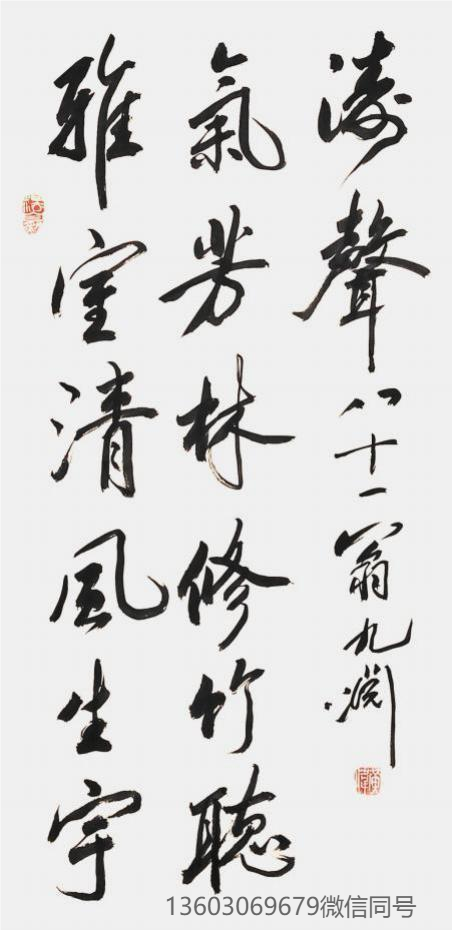 雅室清風生宇
氣芳林修竹聽
濤聲八十一翁九淵
13603069679微信同号